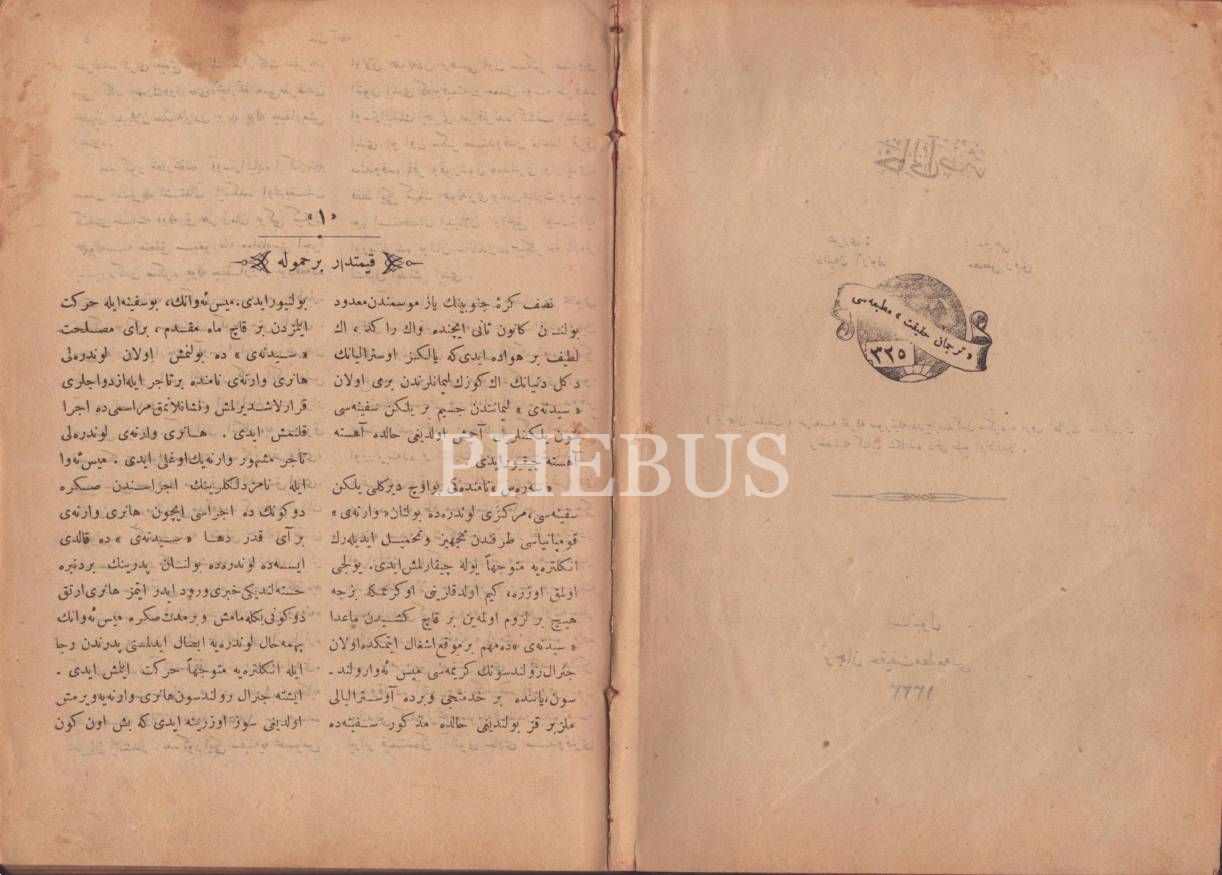 « ترجمان حقیقت » مطبعه‌سی
٣٢٥
«١»
قیمتدار بر حموله
نصف کرۀ جنوبینك یاز موسمندن معدود
بولنــان کانون ثانی ایچنده واك راکد، اك
لطیف بر هواده ایدی‌که یالکز اوسترالیانك
دکل دنیانك اك کوزل لیمانلرندن بری اولان
« سیدنه‌ی » لیمانندن جسیم بر یلکن سفینه‌سی
بتون یلکنلرینی آچمش اولدیغی حالده آهسته
آهسته چیقیور ایدی
نامنده‌کی بو اوچ دیرکلی یلکن
سفینه‌سی، مرکزی لوندره‌ده بولنان « وارنه‌ی »
قومپانیاسی طرفندن تجهیز و تحمیل ایدیله‌رك
انکلتره‌یه متوجهاً یوله چیقارلمش‌ایدی. یولجی
اولمق اوزره، کیم اولدقلرینی اوکرنمکه بزجه
هیچ بر لزوم اولمه‌ین بر قاچ کشیـدن ماعدا
« سیدنه‌ی »ده مهم بر موقع اشغال ایتمکده اولان
جنرال رولندسونك کریمه‌سی میس ئه‌وا رولند-
سون، یاننده بر خدمتجی و برده آوسترالیالی
ملز بر قز بولندیغی حالده مذکور سـفینه‌ده
بولنیور ایدی. میس ئه‌وانك، بو سفینه ایله حرکت
ایلزدن بر قاچ ماه مقـدم، برای مصـلحت
« سـیدنه‌ی » ده بولنمش اولان لوندره‌لی
هانری وارنه‌ی نامنده بر تاجر ایله ازدواجلری
قرارلاشـدیرلمش و نشانلانمق مراسمی‌ده اجرا
قلنمش ایدی . هـانری وارنه‌ی لوندره‌لی
تاجر مشهور وارنه‌یك اوغلی ایدی . میس ئه‌وا
ایله نامزدلکلرینك اجراسـندن صـکره
دوکونك ده اجراسی ایچون هانری وارنه‌ی
بر آی قدر دهـا « سـیدنه‌ی »ده قالدی
ایسـه‌ده لوندره‌ده بولنـان پدرینك بردنبره
خسته‌لندیکی خبری ورود ایدر ایتمز هانری آرتق
دوکونی بکله‌مامش و بر مدت صکره میس ئه‌وانك
بهمه‌حال لوندره‌یه ایصال ایدلمسنی پدرندن رجا
ایله انکلتره‌یه متوجهاً حرکت ایلمش ایدی .
ایشته جنرال رولندسون هانری وارنه‌یه ویرمش
اولدیغی سوز اوزرینه ایدی که بش اون کون
PHEBUS